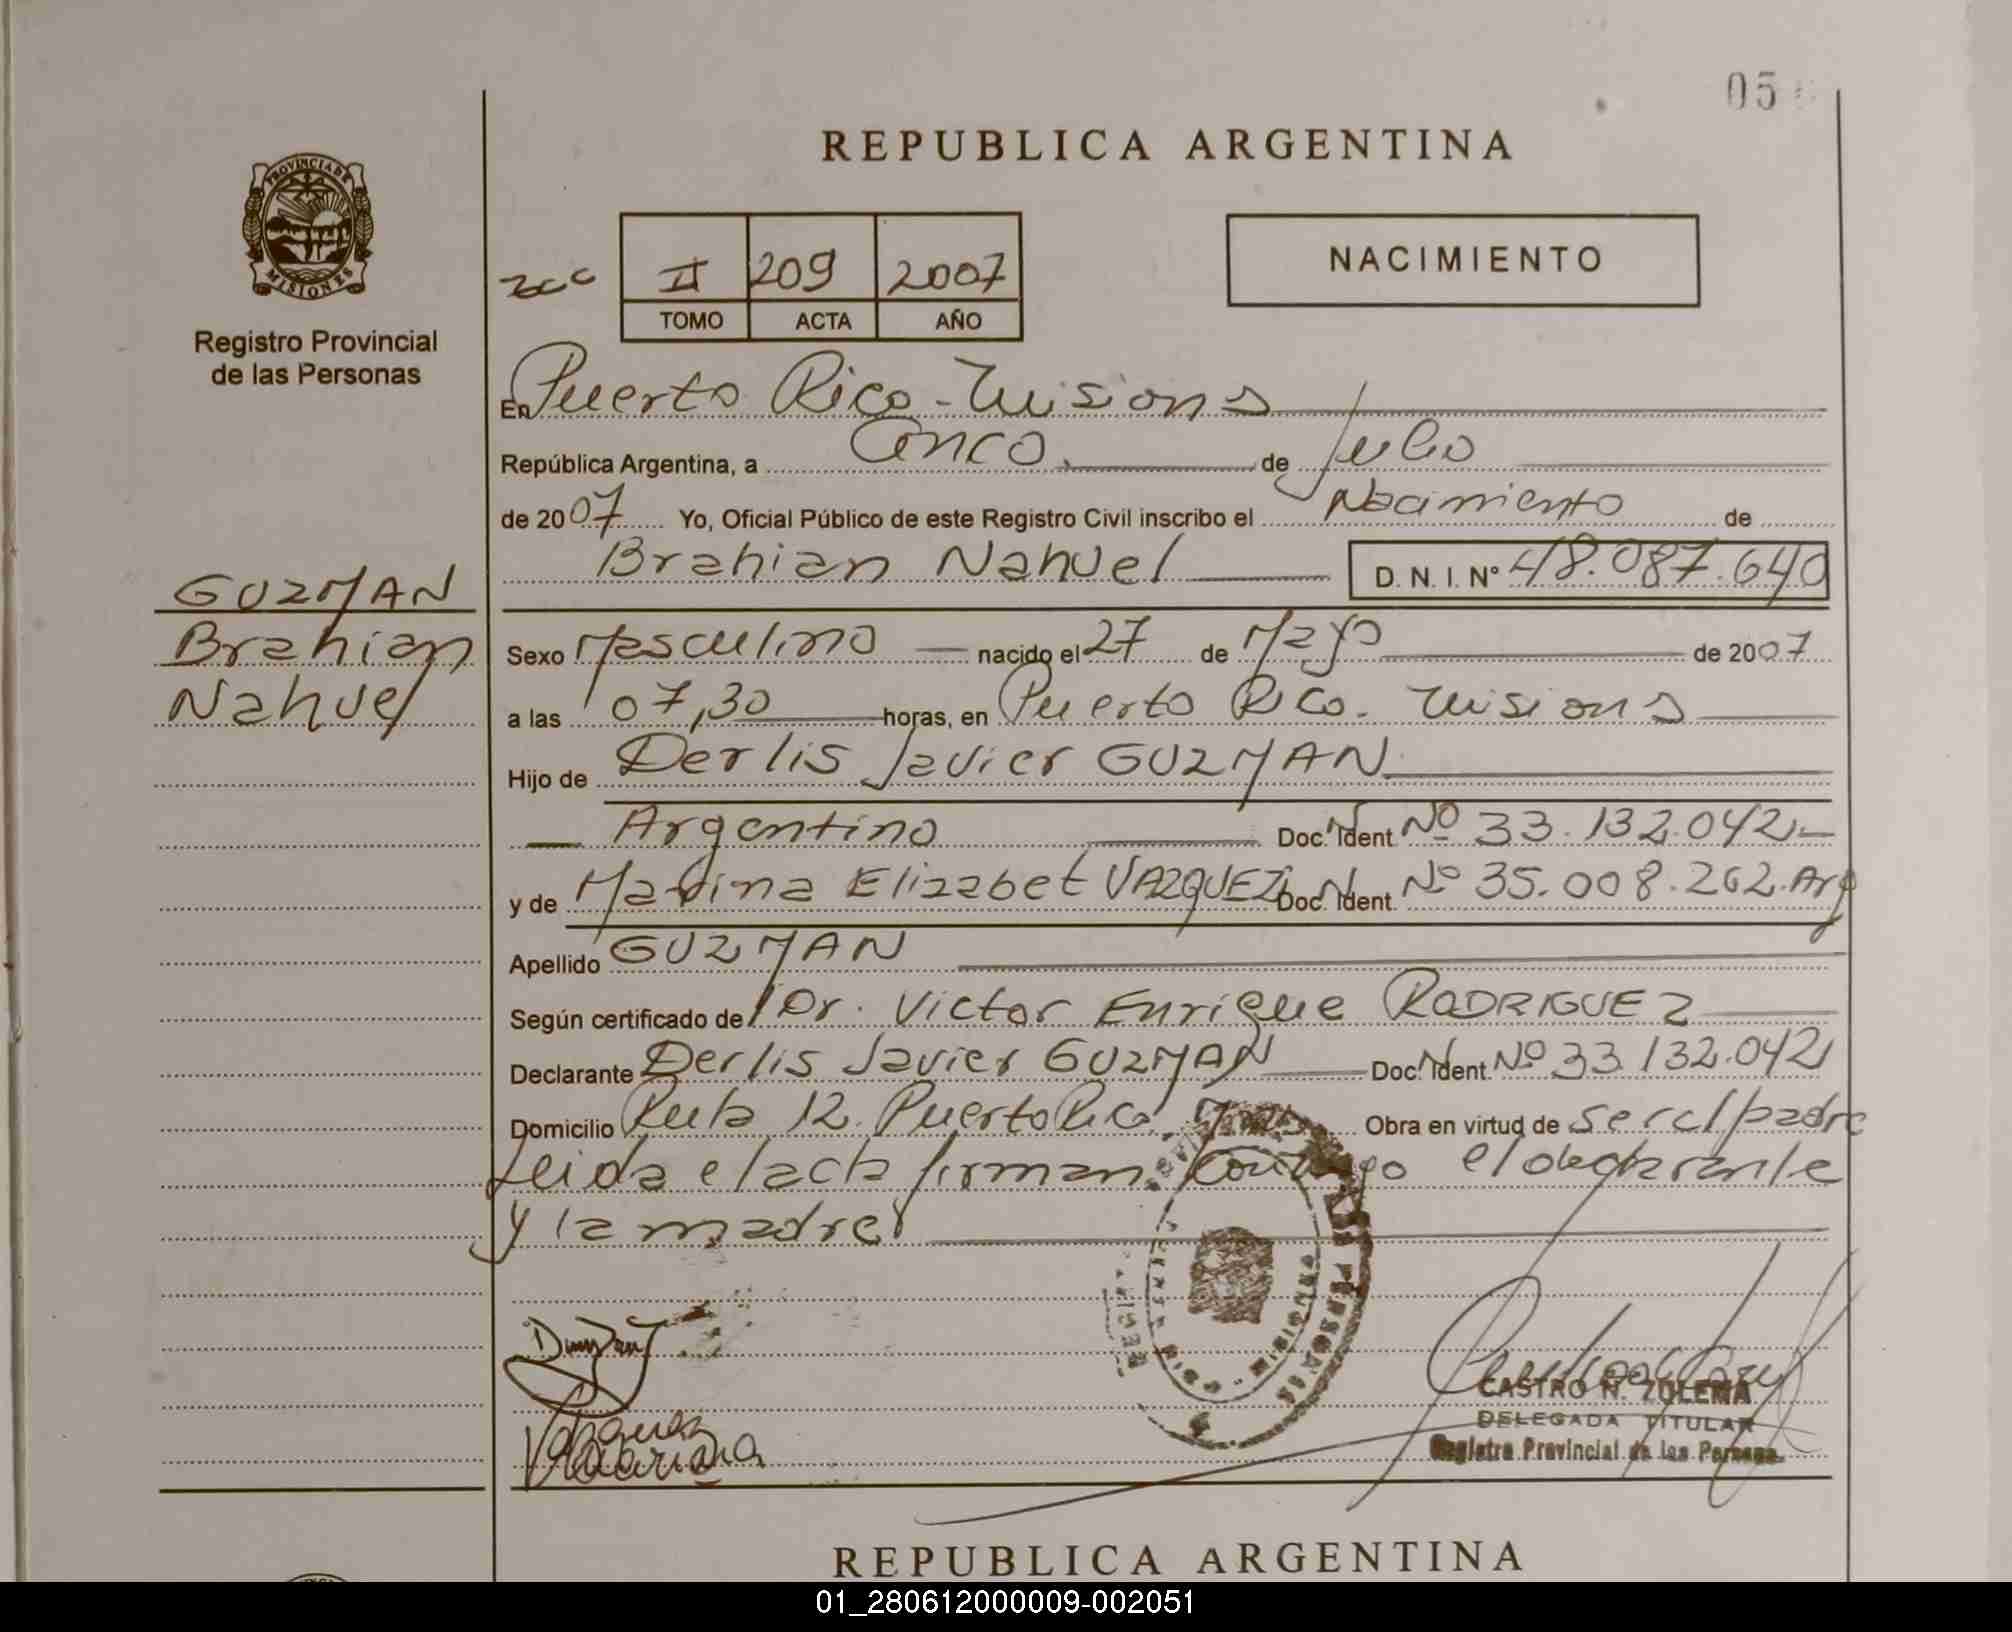 05
REPUBLICA ARGENTINA
PROVINCIA DE
MISIONES
Registro Provincial
de las Personas
NACIMIENTO
II 209 2007
TOMO ACTA AÑO
En Puerto Rico - Misiones
República Argentina, a Cinco de Julio
de 2007 Yo, Oficial Público de este Registro Civil inscribo el Nacimiento de
Brahian Nahuel D. N. I. N° 48.087.640
GUZMAN
Brahian
Nahuel
Sexo Masculino nacido el 27 de Mayo de 2007
a las 07,30 horas, en Puerto Rico. Misiones
Hijo de Derlis Javier GUZMAN
Argentino Doc. Ident. Nº 33.132.042
y de Marina Elizabet VAZQUEZ Doc. Ident. Nº 35.008.262. Arg
Apellido GUZMAN
Según certificado de Dr. Victor Enrique RODRIGUEZ
Declarante Derlis Javier GUZMAN Doc. Ident. Nº 33.132.042
Domicilio Ruta 12. Puerto Rico. Mnes Obra en virtud de ser el padre
Leida el acta firman conmigo el declarante
y la madre
Vazquez
CASTRO N. ZULEMA
DELEGADA TITULAR
Registro Provincial de las Personas
REPUBLICA ARGENTINA
01_280612000009-002051